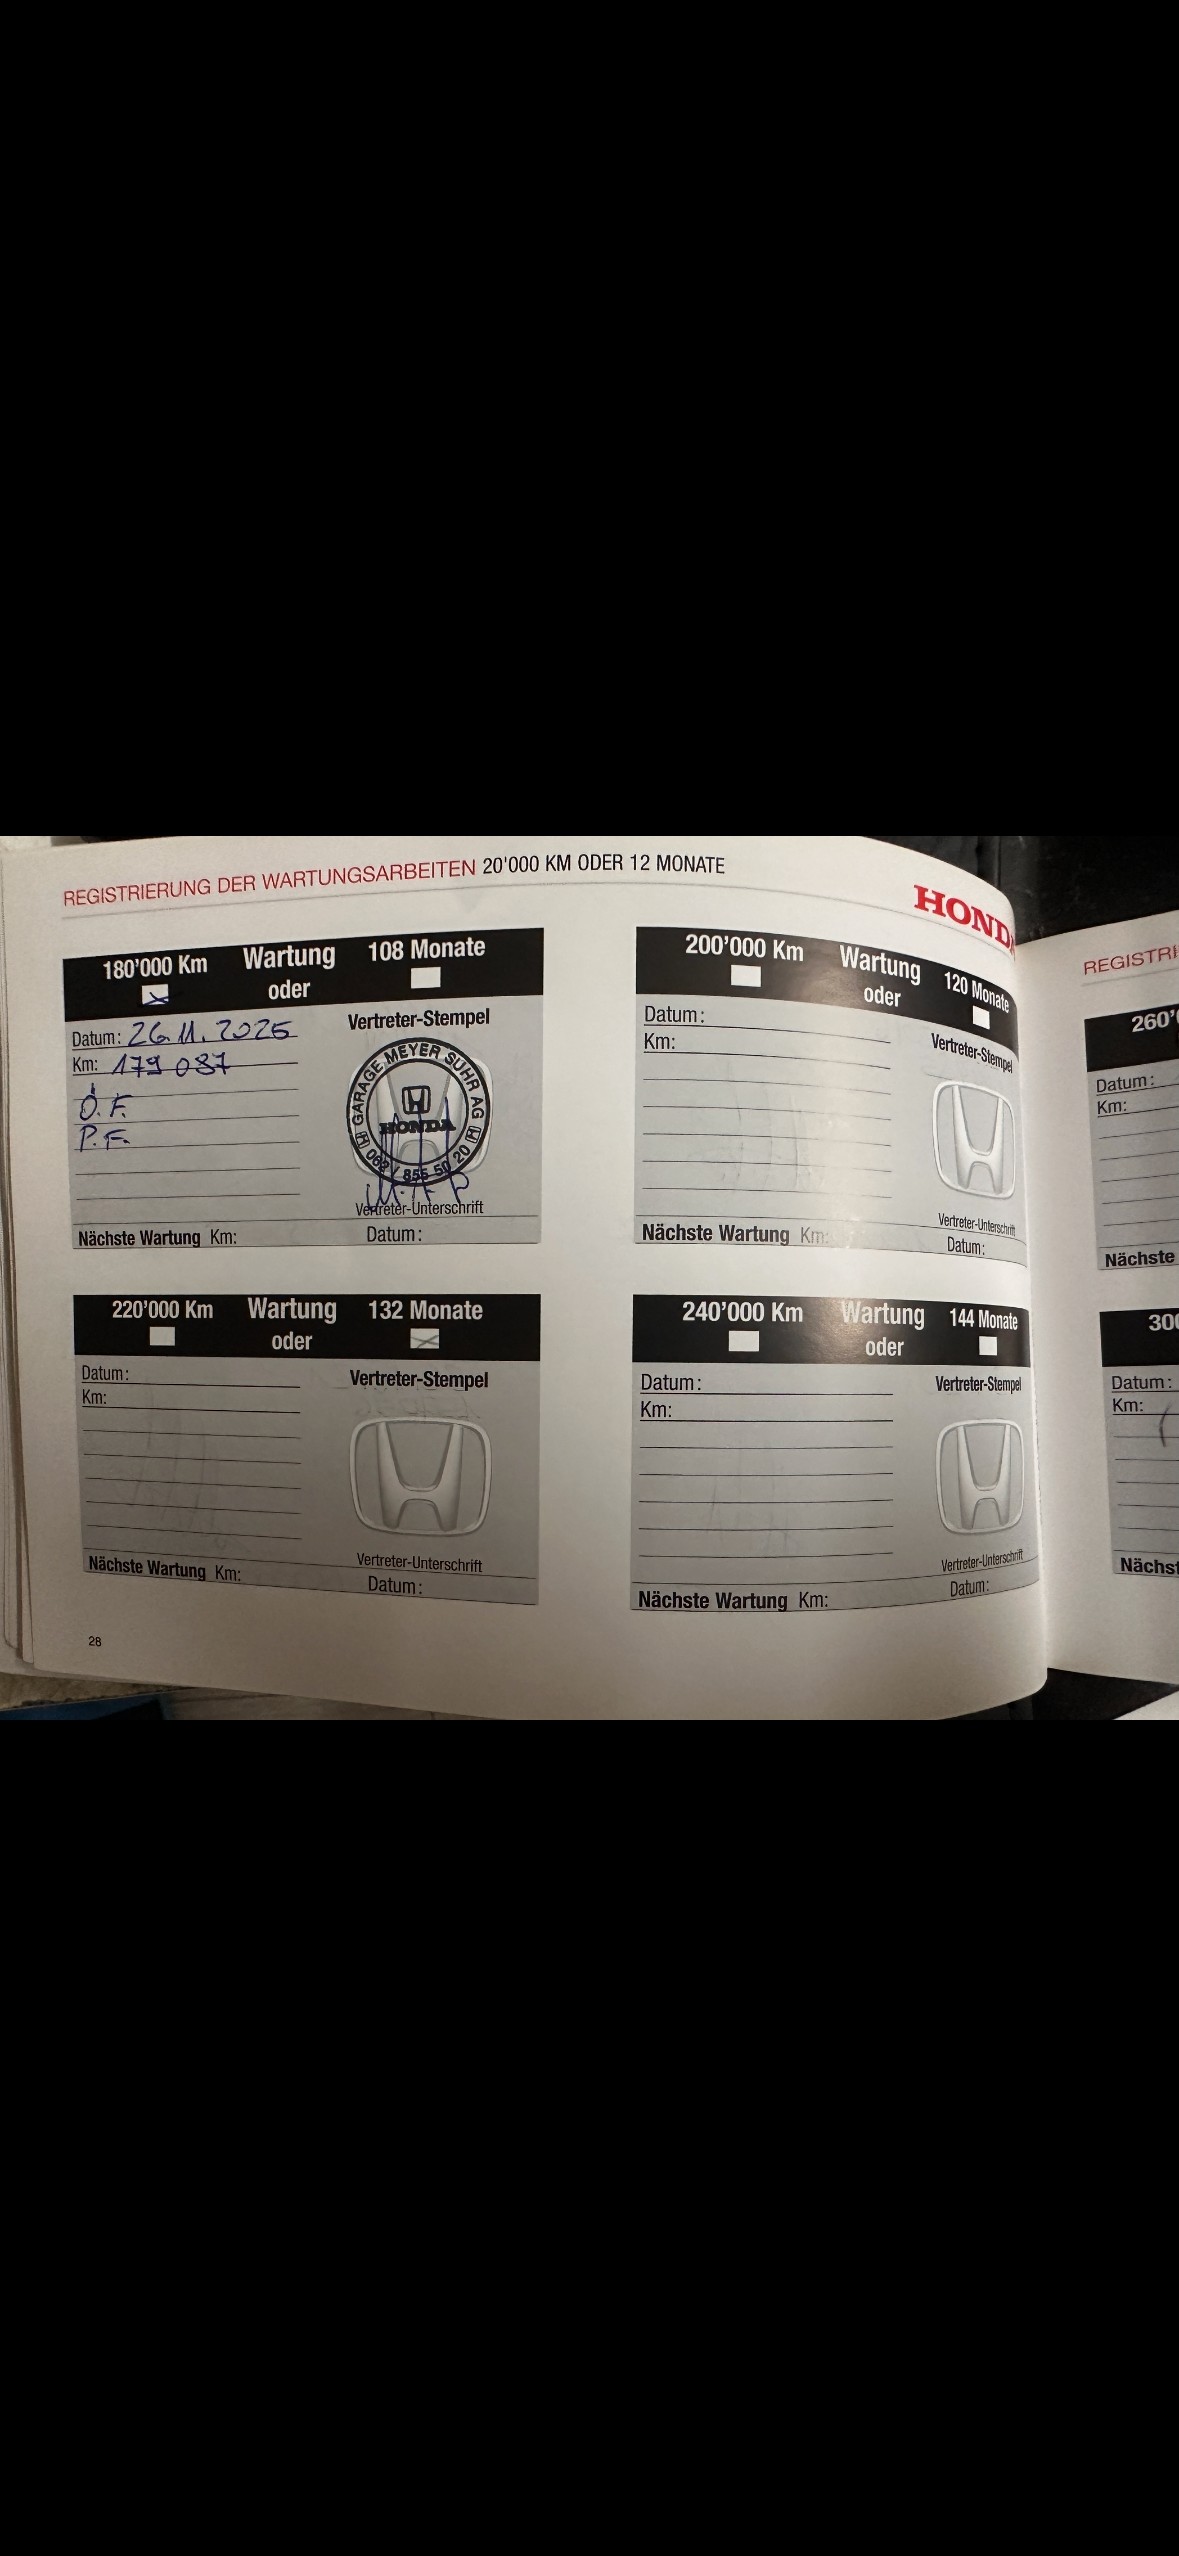 REGISTRIERUNG DER WARTUNGSARBEITEN 20'000 KM ODER 12 MONATE
HONDA
180'000 Km Wartung oder 108 Monate
Datum: 26.11.2025
Km: 179 087
Ö.F.
P.F.
Vertreter-Stempel
GARAGE MEYER SUHR AG
HONDA
062 / 855 50 20
Vertreter-Unterschrift
Nächste Wartung Km: Datum:
200'000 Km Wartung oder 120 Monate
Datum:
Km:
Vertreter-Stempel
Vertreter-Unterschrift
Nächste Wartung Km: Datum:
220'000 Km Wartung oder 132 Monate
Datum:
Km:
Vertreter-Stempel
Vertreter-Unterschrift
Nächste Wartung Km: Datum:
240'000 Km Wartung oder 144 Monate
Datum:
Km:
Vertreter-Stempel
Vertreter-Unterschrift
Nächste Wartung Km: Datum:
28
REGISTRI
260'
Datum:
Km:
Nächste
300
Datum:
Km:
Nächst